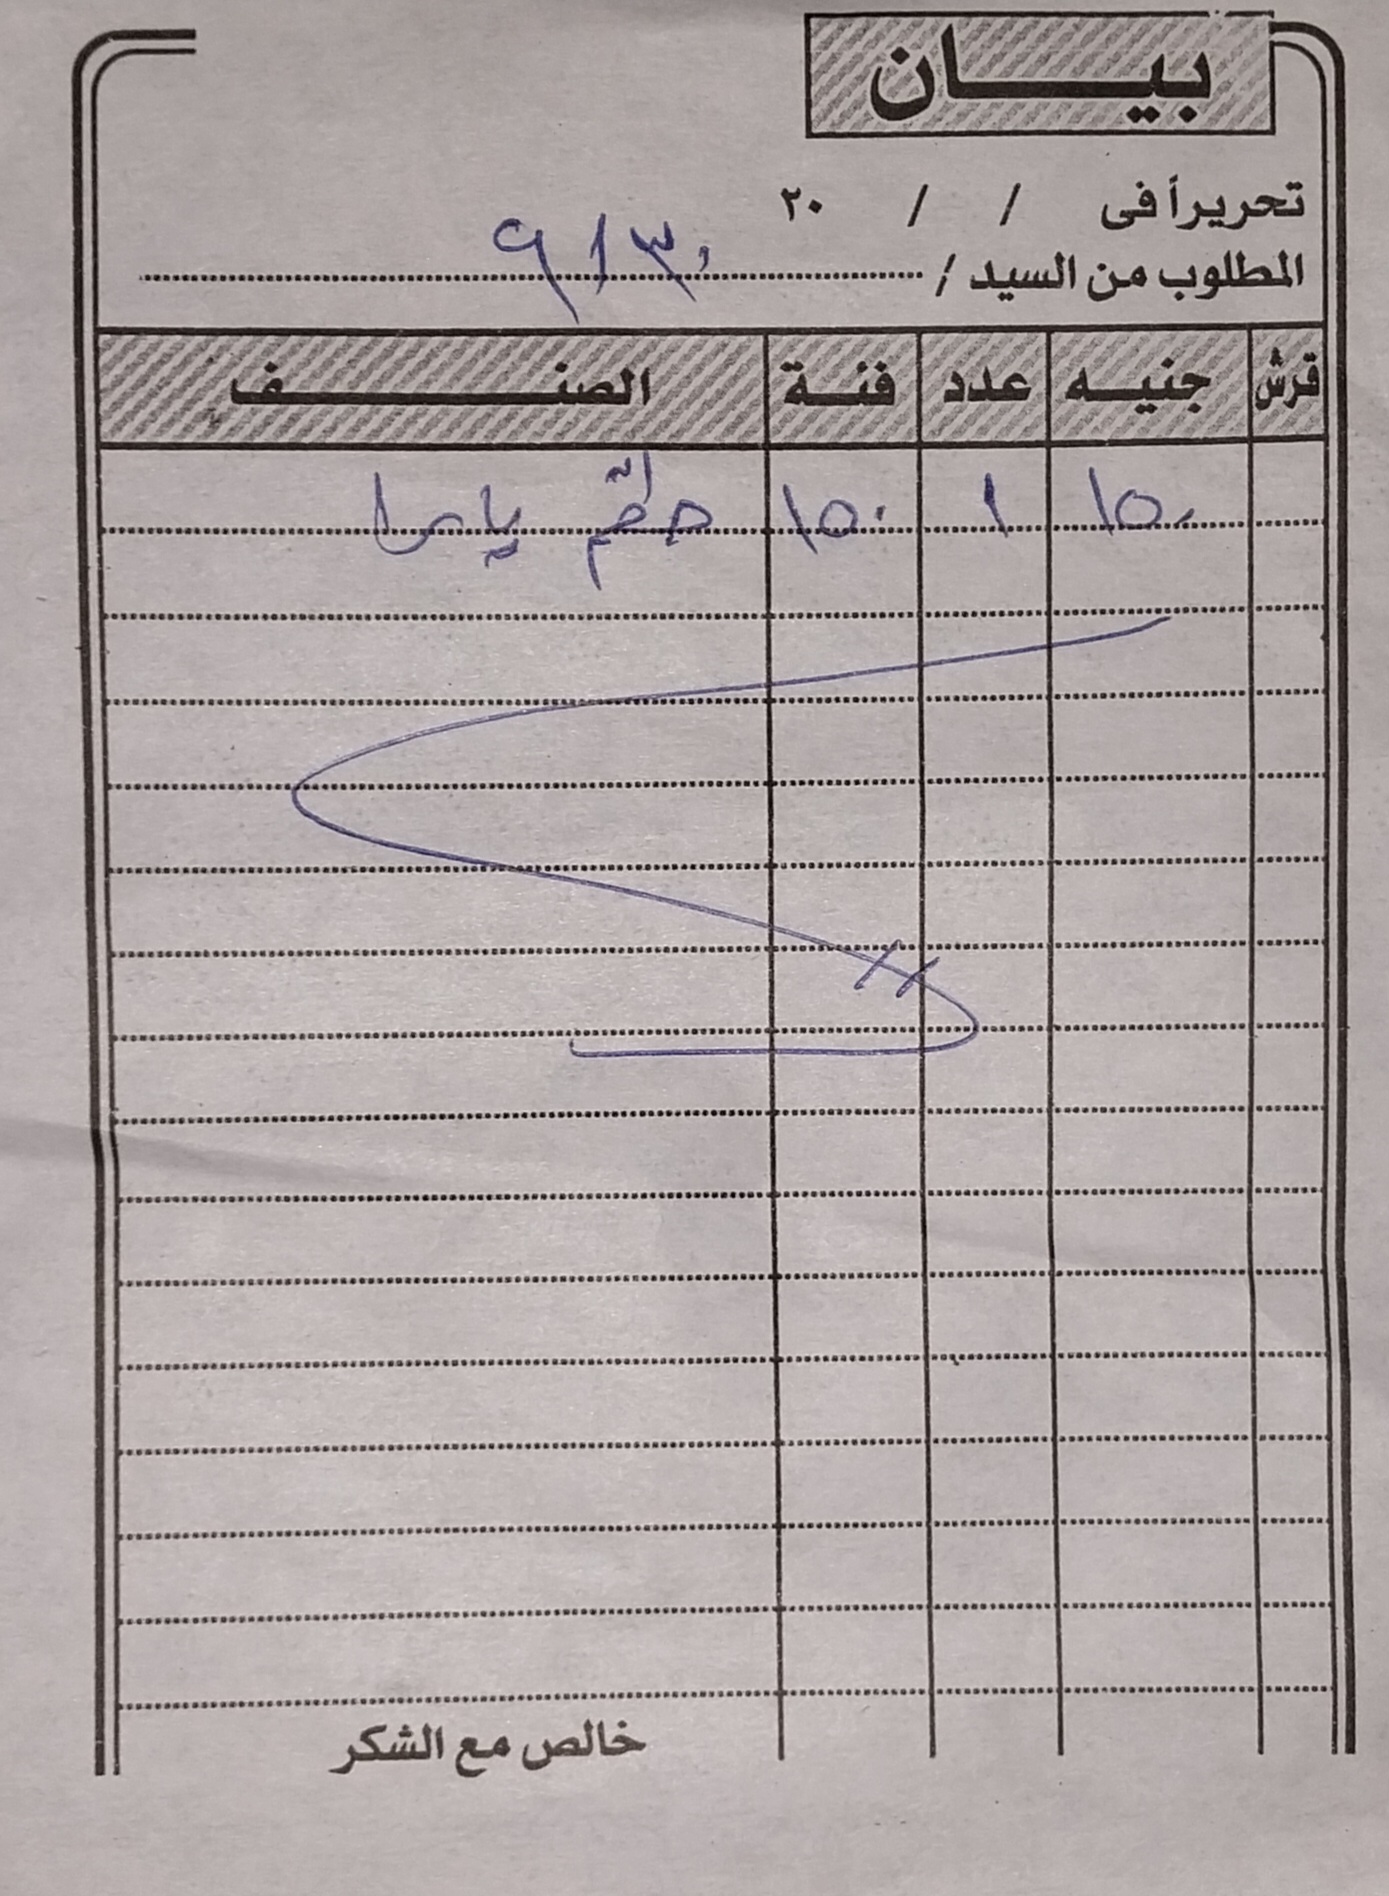 بيان
تحريراً فى / / ٢٠
المطلوب من السيد /
٩/٣٠
قرش جنيه عدد فئة الصنف
١٥٠ ١ ١٥٠
خالص مع الشكر